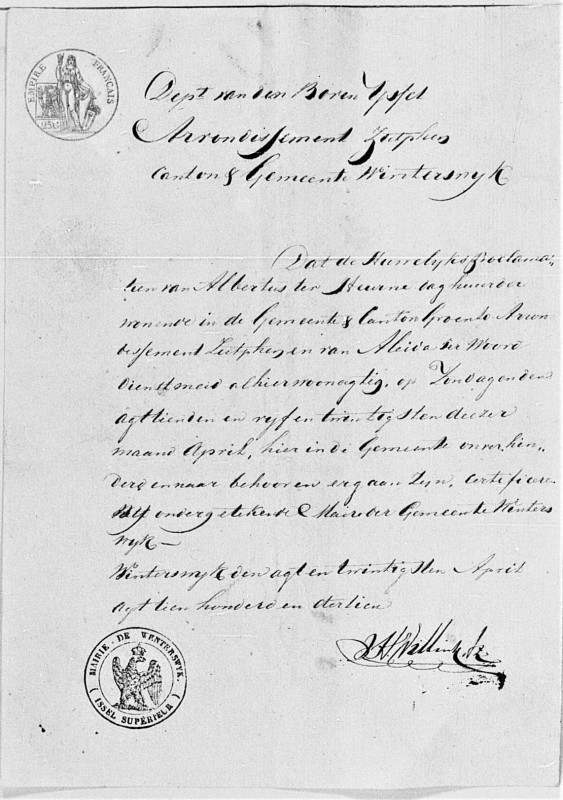 EMPIRE FRANÇAIS
Dept van den Boven Yssel
Arrondissement Zutphen
Canton & Gemeente Winterswyk
Dat de Huwelyks Proclama-
tien van Albertus ter Heurne daghuurder
wonende in de Gemeente & Canton Groenlo Arron
dissement Zutphen en van Aleida ter Woord
dienstmeid alhier woonagtig, op Zondag den
agttienden en vyf en twintigsten deezer
maand April, hier in de Gemeente onverhin„
derd en naar behooren ergaan zyn, certificere
ondergetekende Maire der Gemeente Winters
wyk —
Winterswyk den agt en twintigsten April
agtteen honderd en dertien
Willink
MAIRIE DE WENTERSWYK.
(ISSEL SUPÉRIEUR)